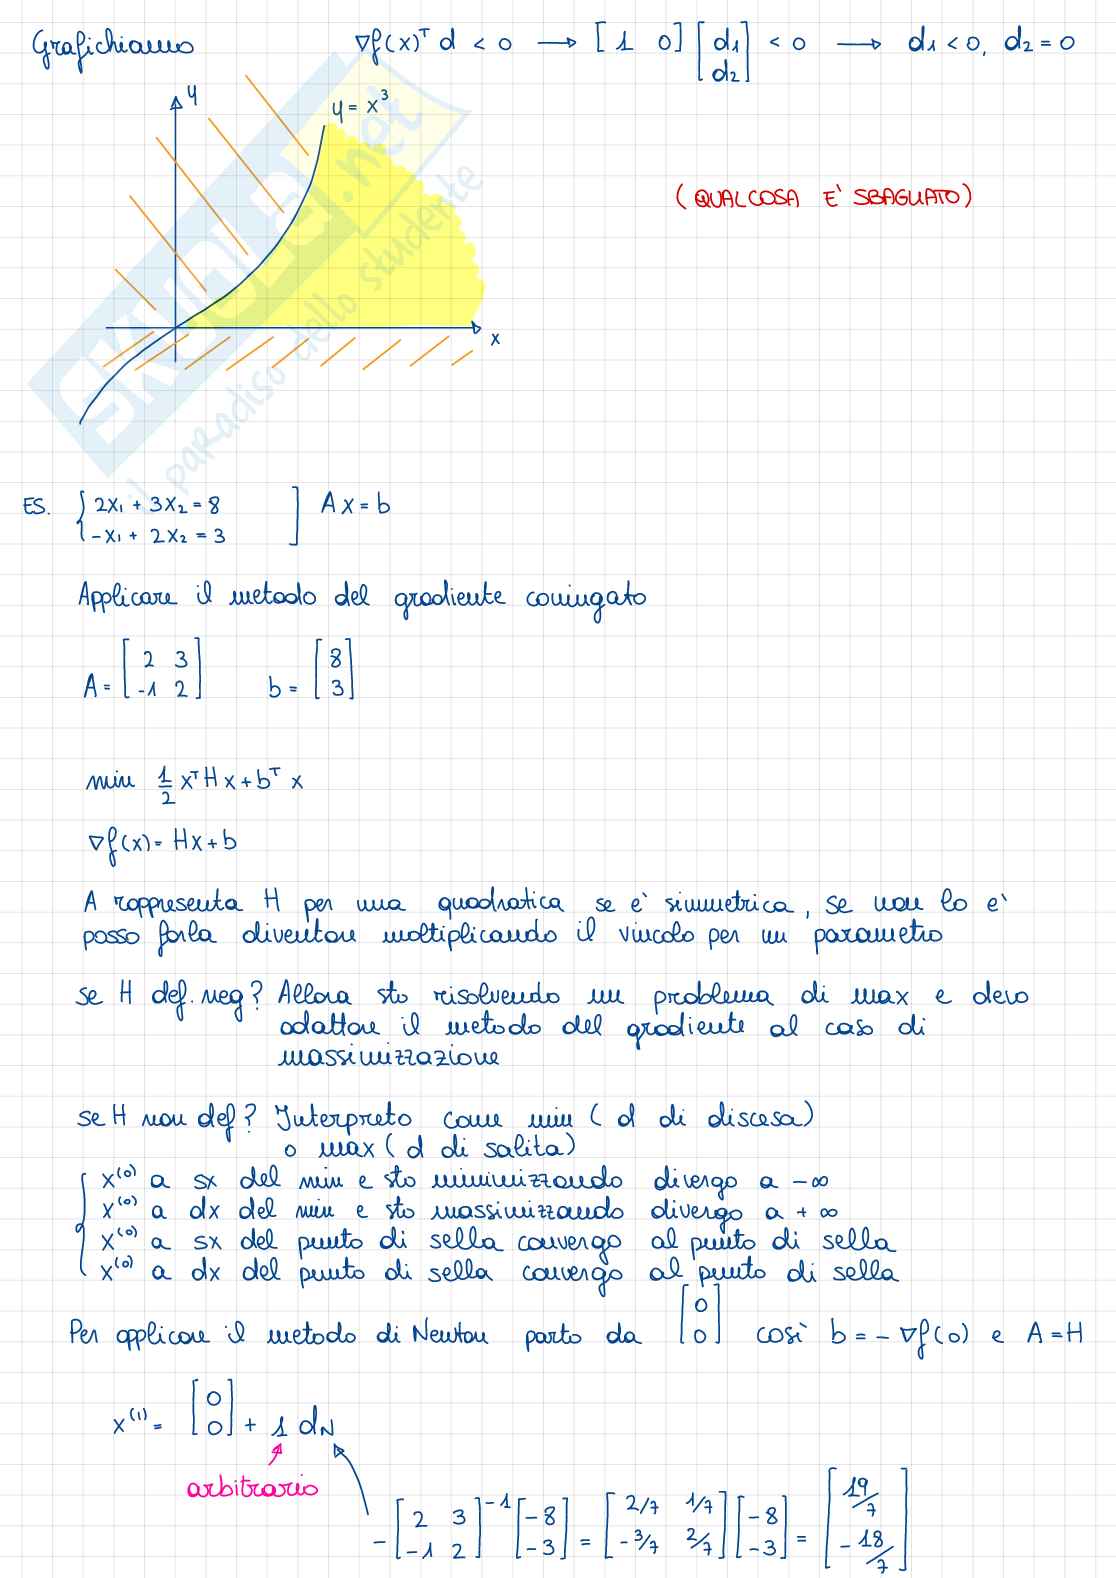 Grafichiamo ∇f(x)ᵀ d < 0 → [1 0] [d1 d2] < 0 → d1 < 0, d2 = 0
y
y = x³
(QUALCOSA E' SBAGLIATO)
x
SKUOLA.net
il paradiso dello studente
ES. { 2x₁ + 3x₂ = 8 ] Ax = b
-x₁ + 2x₂ = 3
Applicare il metodo del gradiente coniugato
A = [2 3; -1 2] b = [8; 3]
min 1/2 xᵀHx + bᵀx
∇f(x) = Hx + b
A rappresenta H per una quadratica se e' simmetrica, se non lo e'
posso farla diventare moltiplicando il vincolo per un parametro
se H def. neg? Allora sto risolvendo un problema di max e devo
adattare il metodo del gradiente al caso di
massimizzazione
se H non def? Interpreto come min (d di discesa)
o max (d di salita)
x⁽⁰⁾ a sx del min e sto minimizzando divergo a -∞
x⁽⁰⁾ a dx del min e sto massimizzando divergo a +∞
x⁽⁰⁾ a sx del punto di sella convergo al punto di sella
x⁽⁰⁾ a dx del punto di sella convergo al punto di sella
Per applicare il metodo di Newton parto da [0; 0] così b = -∇f(0) e A = H
x⁽¹⁾ = [0; 0] + 1 dN
arbitrario
- [2 3; -1 2]⁻¹ [-8; -3] = [2/7 1/7; -3/7 2/7] [-8; -3] = [19/7; -18/7]